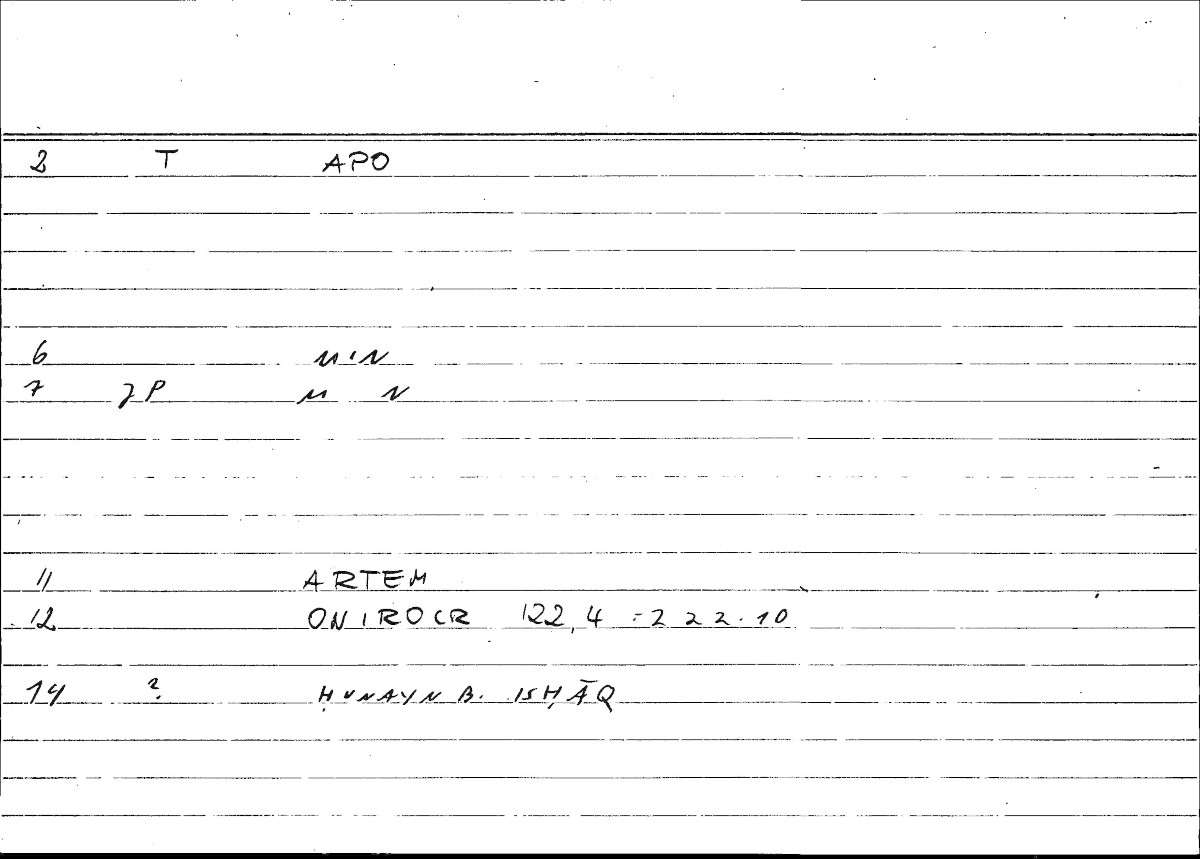 2 T APO
6
7 P
11 ARTEM
12 ONIROCR 122,4 = 222.10
14 ? ḤUNAYN B. ISḤĀQ